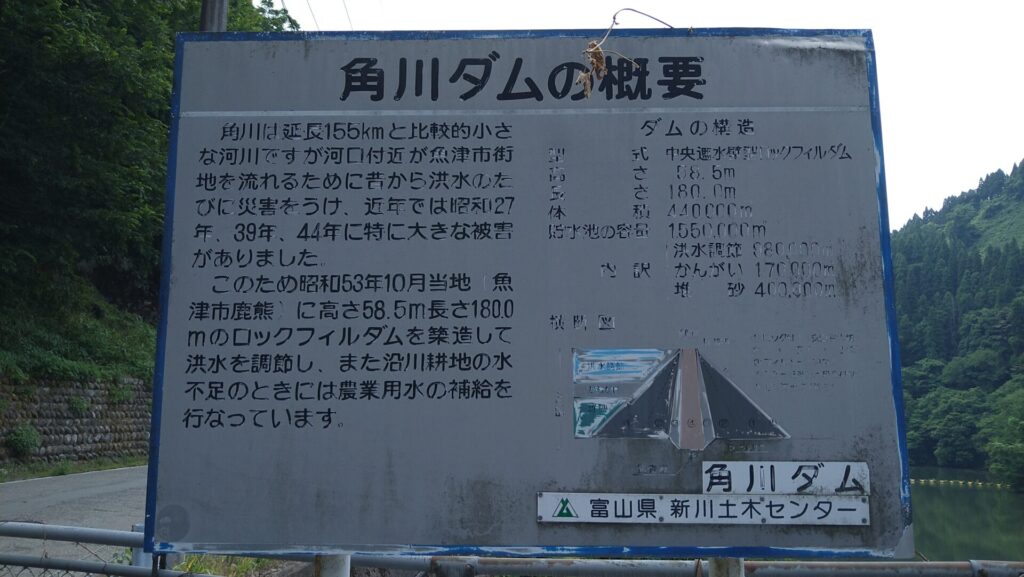 角川ダムの概要
角川は延長155kmと比較的小さ
な河川ですが河口付近が魚津市街
地を流れるために昔から洪水のた
びに災害をうけ、近年では昭和27
年、39年、44年に特に大きな被害
がありました。
このため昭和53年10月当地(魚
津市鹿熊)に高さ58.5m長さ180.0
mのロックフィルダムを築造して
洪水を調節し、また沿川耕地の水
不足のときには農業用水の補給を
行なっています。
ダムの構造
型 式 中央遮水壁型ロックフィルダム
高 さ 58.5m
長 さ 180.0m
体 積 440,000m
貯水池の容量 1,550,000m
洪水調節 980,000m
内 訳 かんがい 170,000m
堆 砂 400,000m
横断図
洪水調節
角川ダム
富山県 新川土木センター